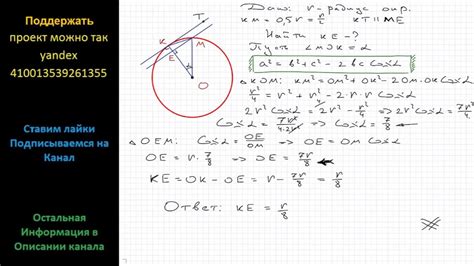 Поддержать
проект можно так
yandex
410013539261355
Ставим лайки
Подписываемся на
Канал
Остальная
Информация в
Описании канала
T
K
M
E
α
O
Дано: r - радиус окр.
KM = 0,5r = r/2 KT || ME
Найти KE - ?
Пусть ∠MOK = α
a² = b² + c² - 2bc Cosα
△KOM: KM² = OM² + OK² - 2OM·OK Cosα
r²/4 = r² + r² - 2·r·r Cosα
2r² Cosα = 2r² - r²/4 ⇒ 2r² Cosα = 7r²/4
Cosα = 7r²/4·2r² ⇒ Cosα = 7/8
△OEM: Cosα = OE/OM ⇒ OE = OM Cosα
OE = r · 7/8 ⇒ OE = 7r/8
KE = OK - OE = r - 7r/8 = r/8
Ответ: KE = r/8